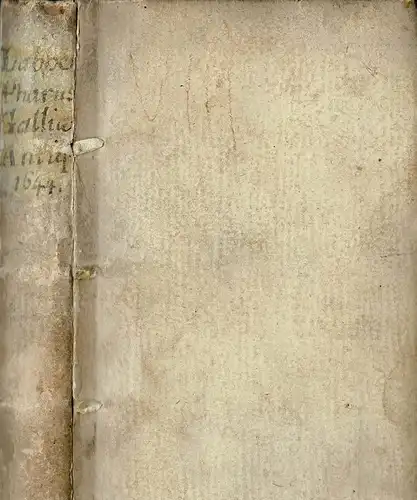 Labbe
Pharus
Galliæ
Antiq
1644.